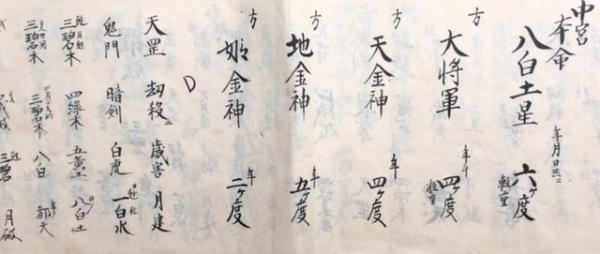 中宮
本命
八白土星 年月日共ニ 六ヶ度
大將軍 年 四ヶ度
方 天金神 年 四ヶ度
方 地金神 年 五ヶ度
方 姫金神 年 二ヶ度
天罡 劫殺 歳害 月建
鬼門 暗剣 白虎 一白水
三碧木 四緑木 五黄土 八白土
三碧木 三碧木 八白 都天
三碧 月破